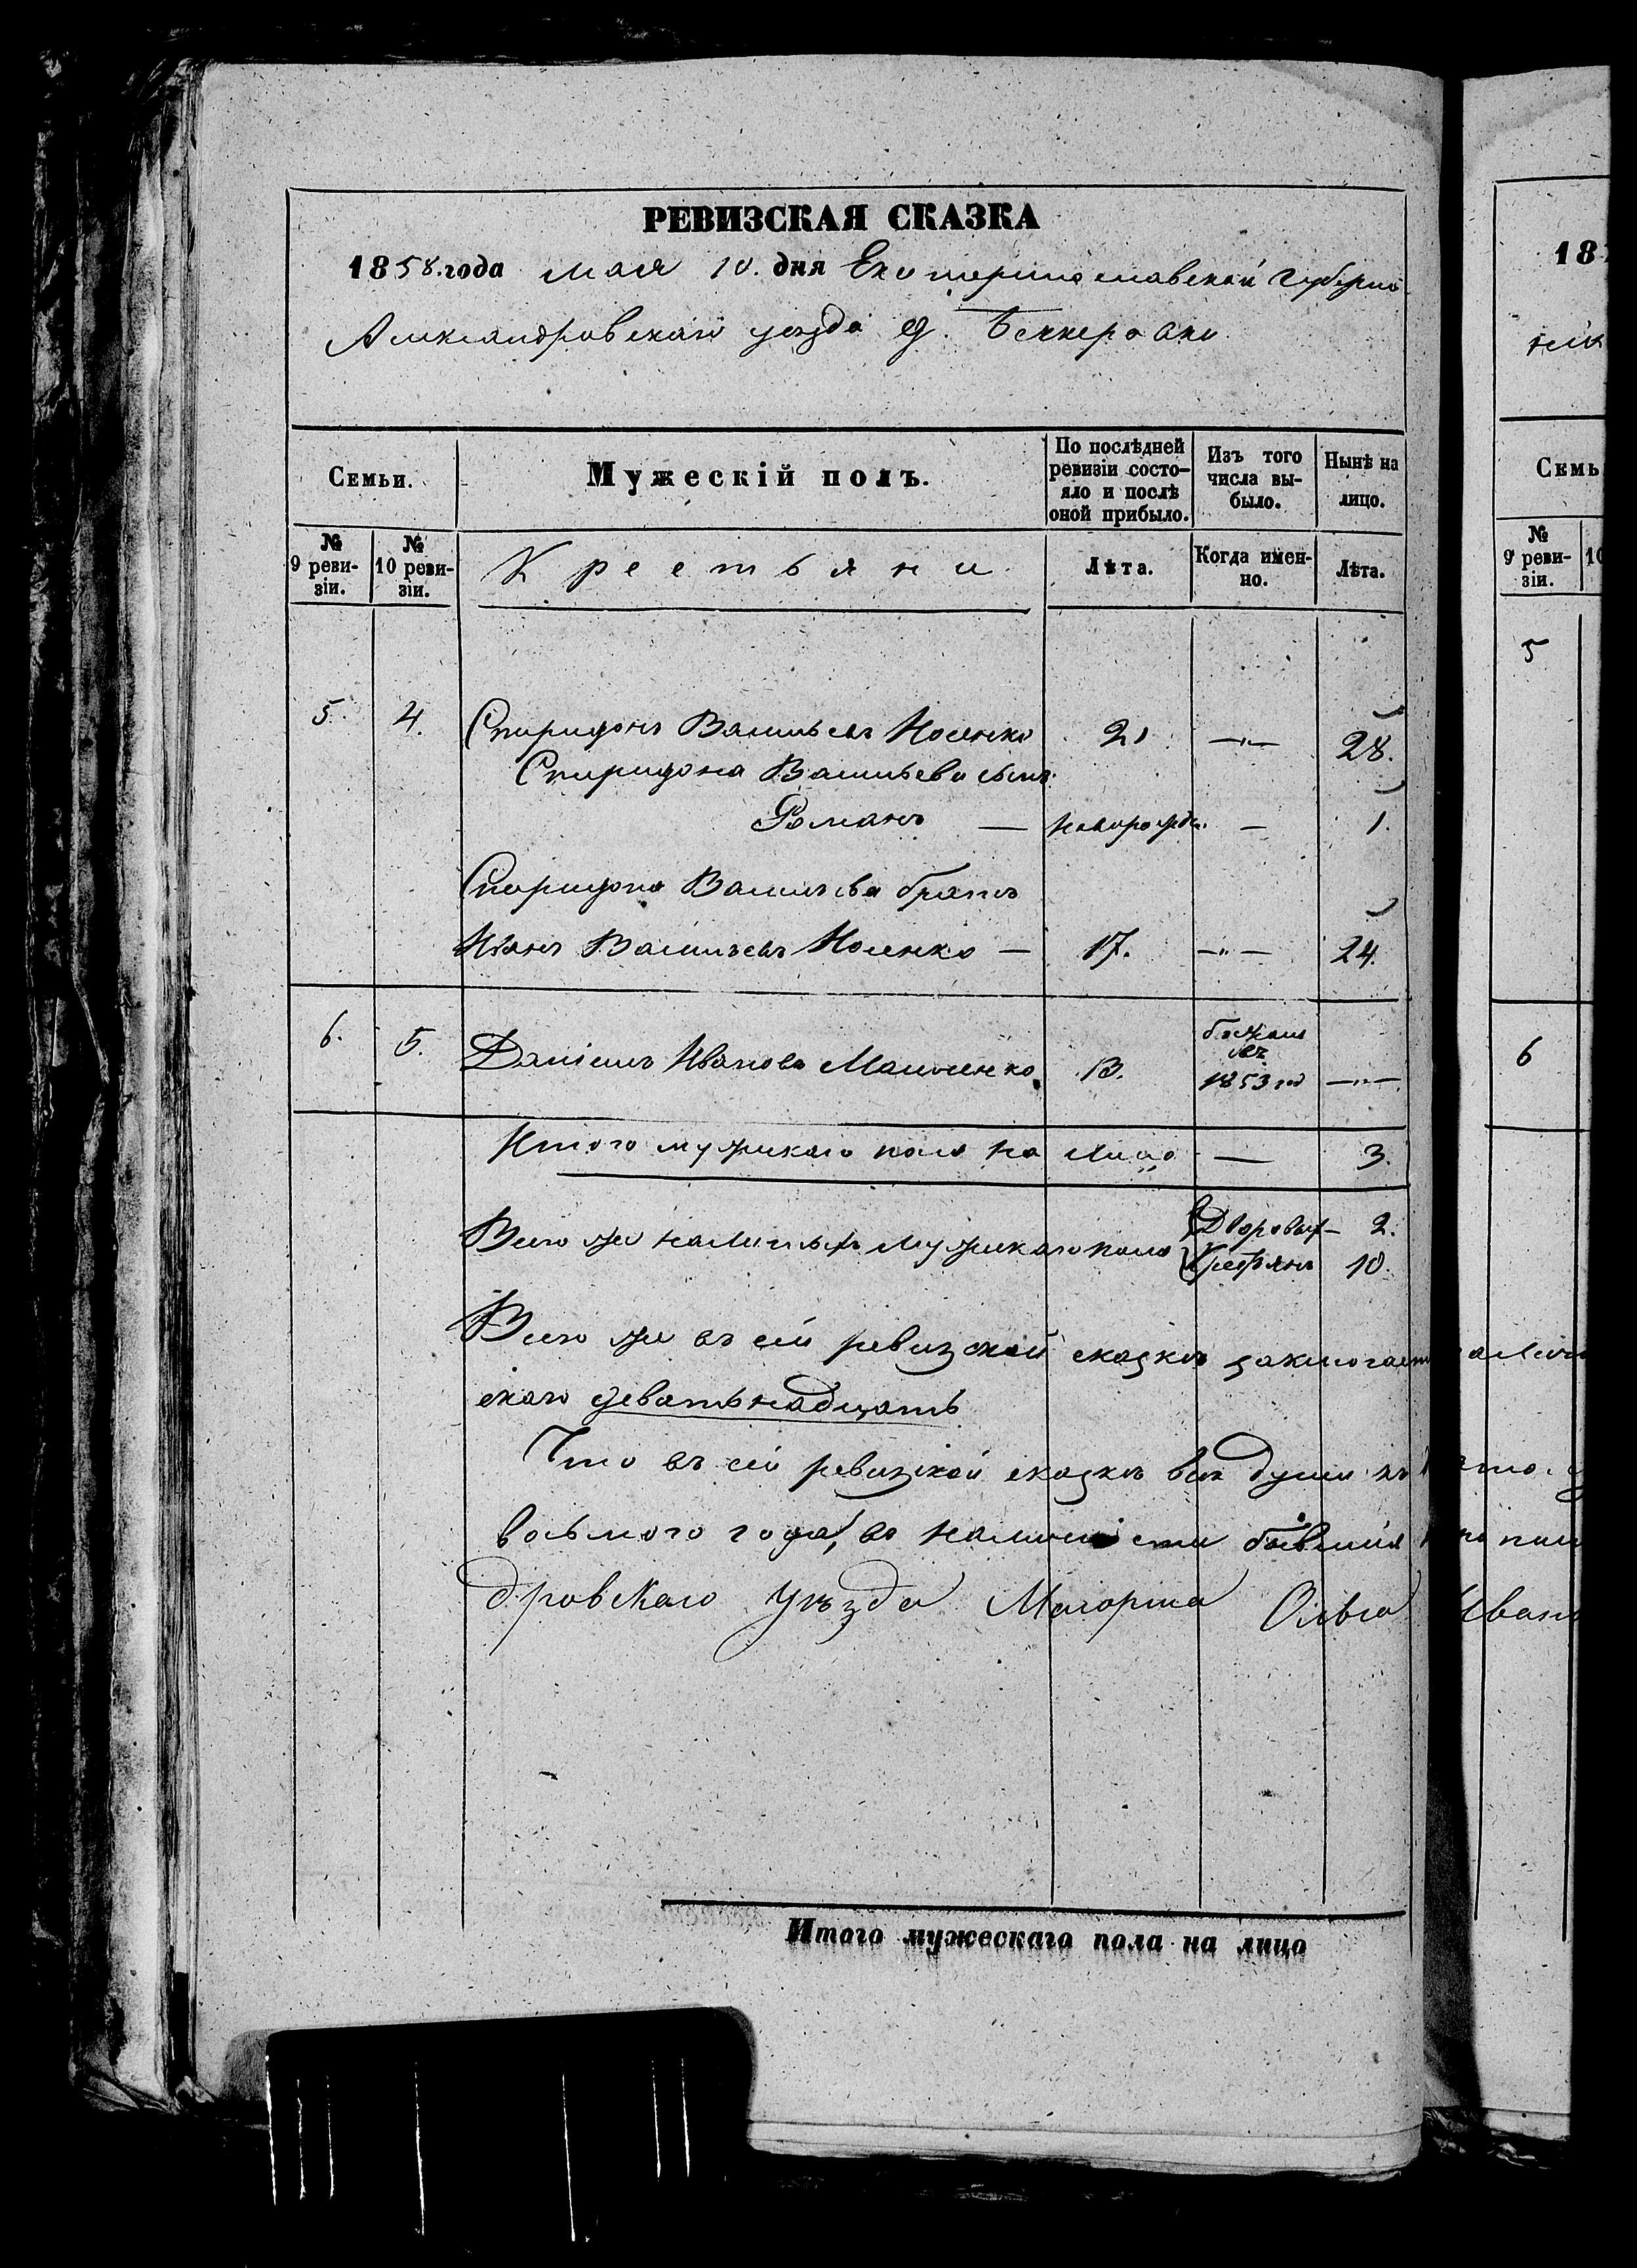 РЕВИЗСКАЯ СКАЗКА
1858 года мая 10. дня Екатеринославской губерніи
Александровскаго уезда д. Беккеровки
Семьи.
Мужескій полъ.
По послѣдней ревизіи состо-
яло и послѣ
оной прибыло.
Изъ того
числа вы-
было.
Нынѣ на
лицо.
№
9 реви-
зіи.
№
10 реви-
зіи.
Крестьяни
Лѣта.
Когда имен-
но.
Лѣта.
5. 4. Спиридонъ Васильевъ Носенко 21 —"— 28.
Спиридона Васильева сынъ
Романъ — новорожд. — 1.
Спиридона Васильева братъ
Иванъ Васильевъ Носенко — 17. —"— 24.
6. 5. Даніилъ Ивановъ 13. —"—
1853 год
Итого мужскаго пола на лицо — 3.
Всего же наличныхъ мужскаго пола
Дворовых — 2.
Крестьянъ 10.
Всего же въ сей ревизской сказкѣ заключает
скаго девятьнадцать
Что въ сей ревизской сказкѣ все души къ
восьмого года, въ наличности бывшия
дровскаго уѣзда Маіорша Ольга
Итого мужескаго пола на лицо
18
Семь
№
9 реви-
зіи.
10
5
6
Иван